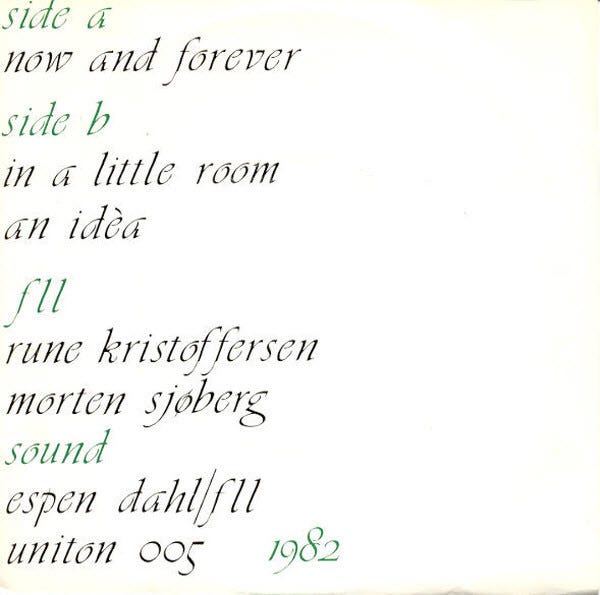 side a
now and forever
side b
in a little room
an idèa
fll
rune kristoffersen
morten sjøberg
sound
espen dahl/fll
uniton 005 1982